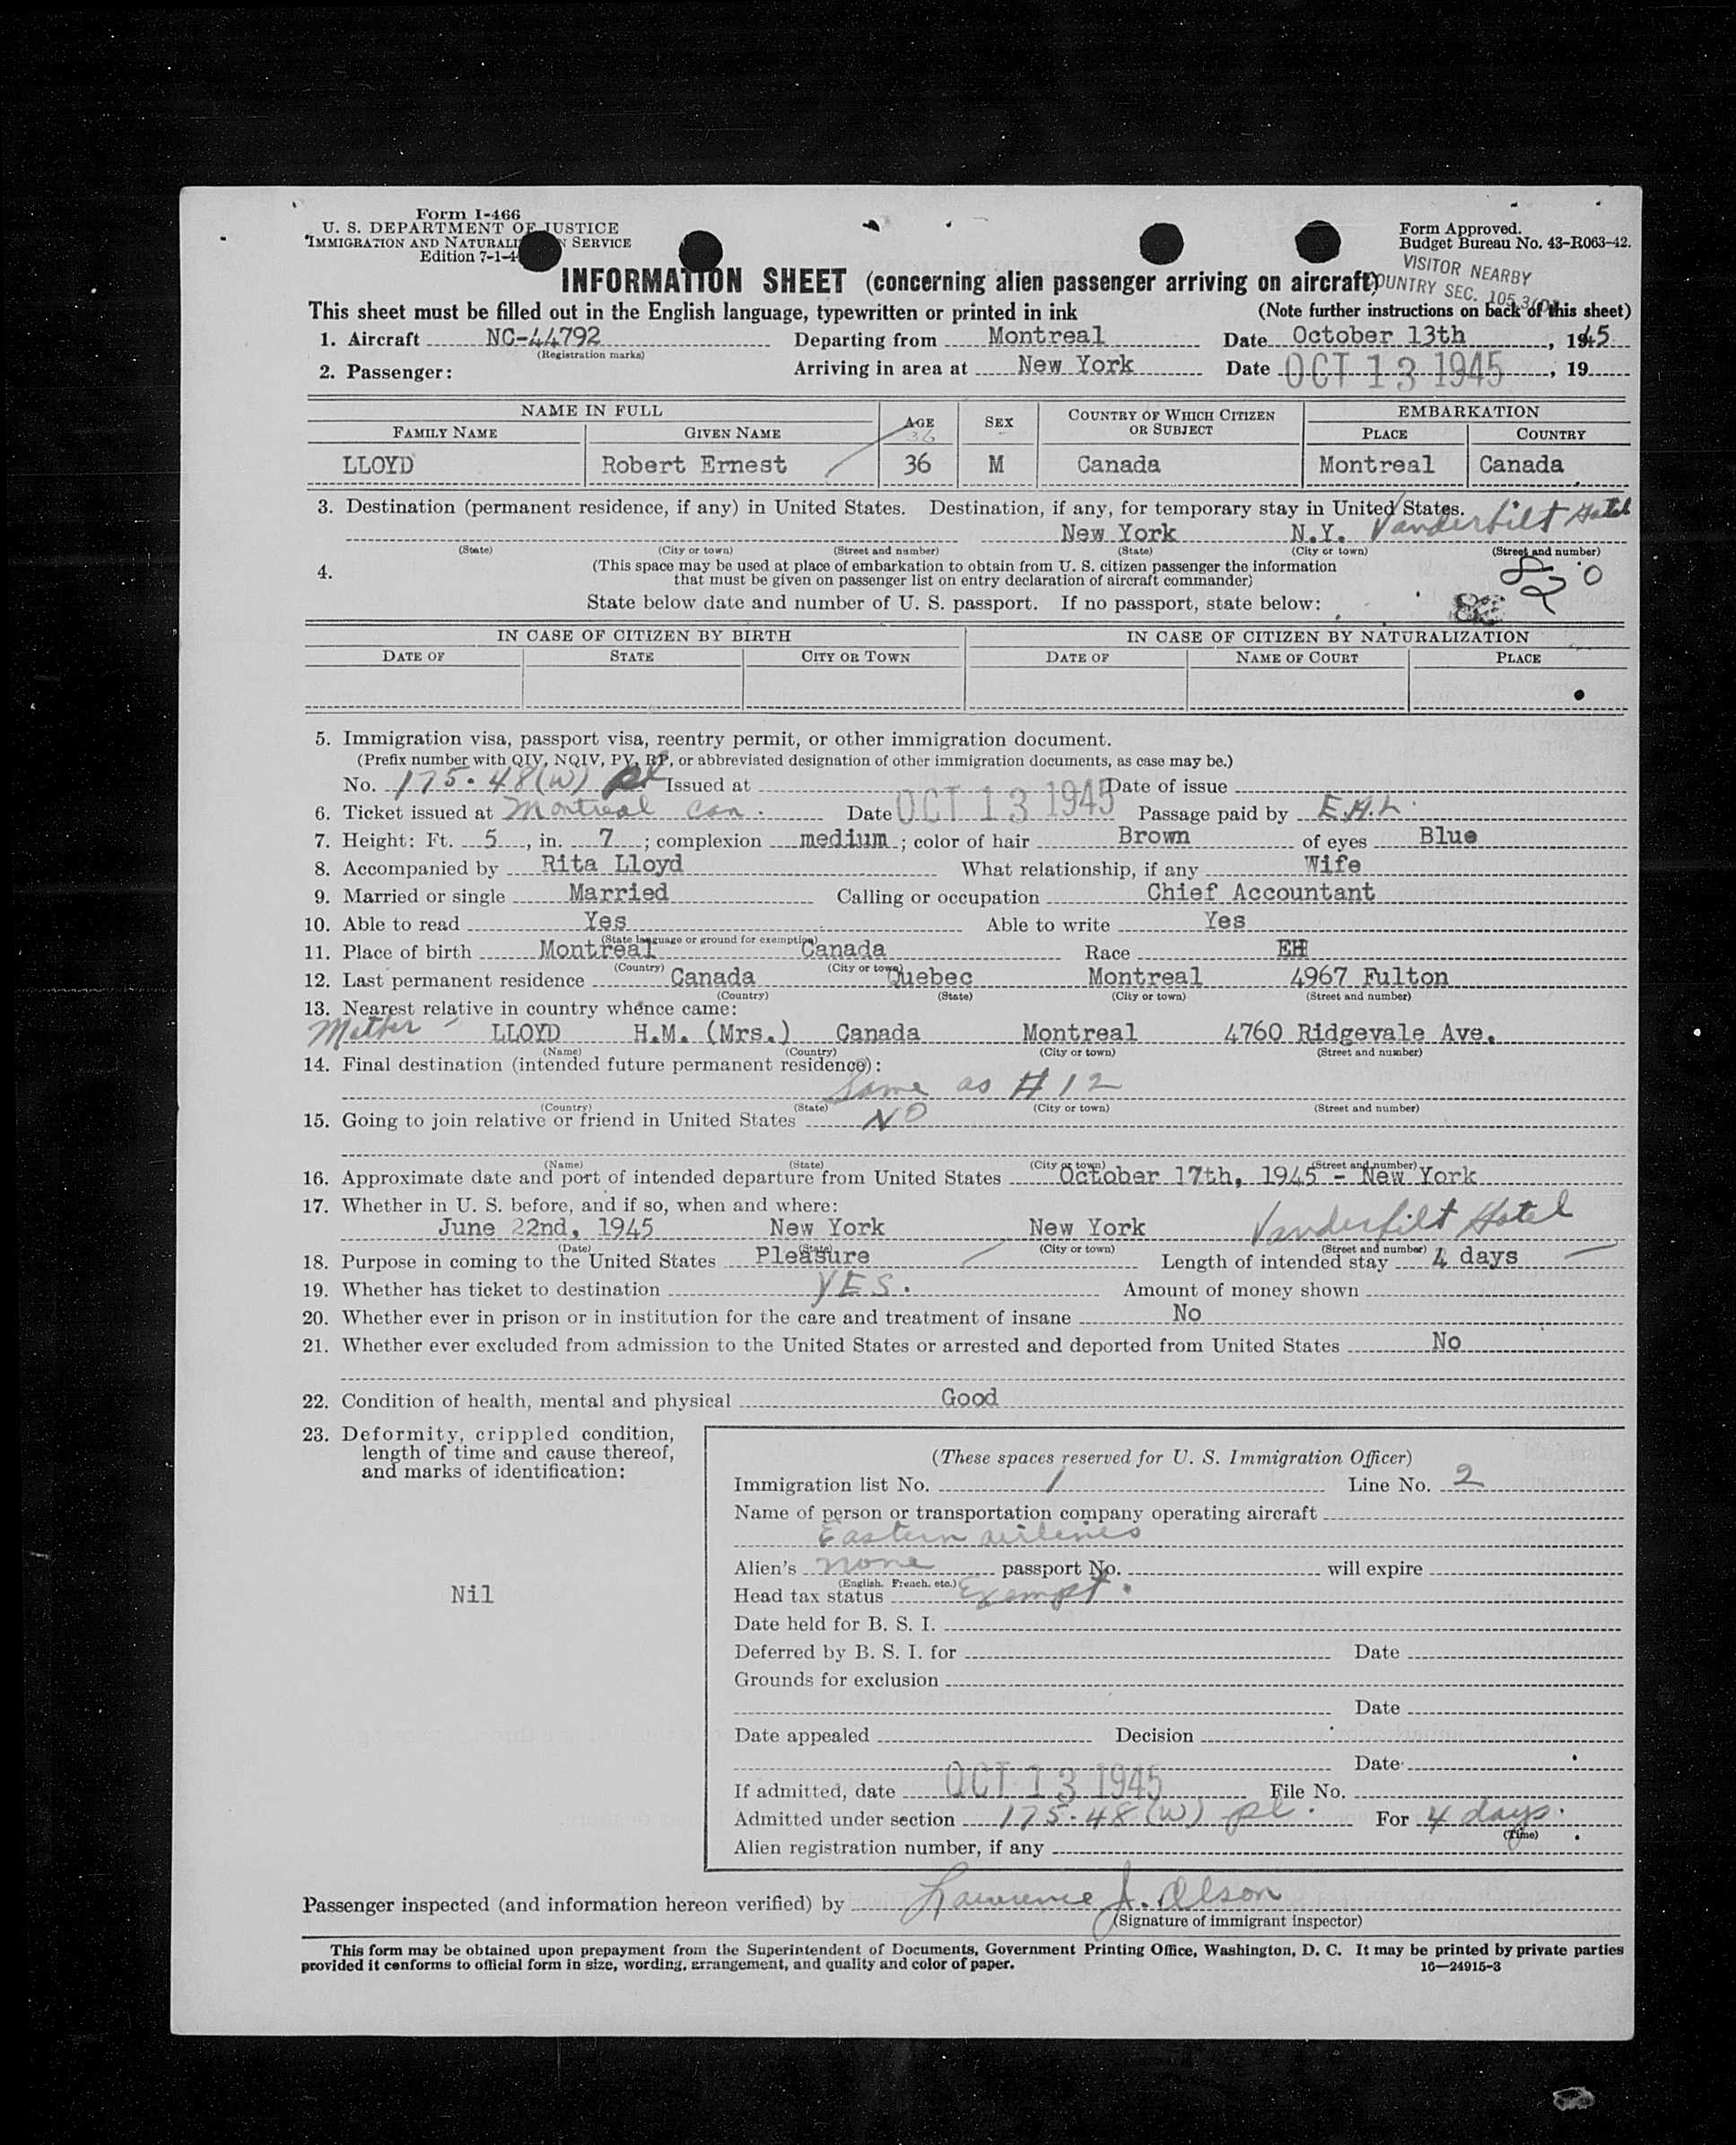 Form I-466
U. S. DEPARTMENT OF JUSTICE
IMMIGRATION AND NATURALIZATION SERVICE
Edition 7-1-4
Form Approved.
Budget Bureau No. 43-R063-42.
VISITOR NEARBY
COUNTRY SEC. 105.3
INFORMATION SHEET (concerning alien passenger arriving on aircraft)
This sheet must be filled out in the English language, typewritten or printed in ink (Note further instructions on back of this sheet)
1. Aircraft NC-44792 Departing from Montreal Date October 13th, 1945
(Registration marks)
2. Passenger: Arriving in area at New York Date OCT 13 1945, 19
NAME IN FULL AGE SEX COUNTRY OF WHICH CITIZEN OR SUBJECT EMBARKATION
FAMILY NAME GIVEN NAME 36 PLACE COUNTRY
LLOYD Robert Ernest 36 M Canada Montreal Canada
3. Destination (permanent residence, if any) in United States. Destination, if any, for temporary stay in United States.
New York N.Y. Vanderbilt Hotel
(State) (City or town) (Street and number) (State) (City or town) (Street and number)
4. (This space may be used at place of embarkation to obtain from U. S. citizen passenger the information
that must be given on passenger list on entry declaration of aircraft commander)
State below date and number of U. S. passport. If no passport, state below:
IN CASE OF CITIZEN BY BIRTH IN CASE OF CITIZEN BY NATURALIZATION
DATE OF STATE CITY OR TOWN DATE OF NAME OF COURT PLACE
5. Immigration visa, passport visa, reentry permit, or other immigration document.
(Prefix number with QIV, NQIV, PV, RP, or abbreviated designation of other immigration documents, as case may be.)
No. 175.48(W) pl Issued at Date of issue
6. Ticket issued at Montreal Can. Date OCT 13 1945 Passage paid by
7. Height: Ft. 5, in. 7; complexion medium; color of hair Brown of eyes Blue
8. Accompanied by Rita Lloyd What relationship, if any Wife
9. Married or single Married Calling or occupation Chief Accountant
10. Able to read Yes Able to write Yes
(State language or ground for exemption)
11. Place of birth Montreal Canada Race EH
(Country) (City or town)
12. Last permanent residence Canada Quebec Montreal 4967 Fulton
(Country) (State) (City or town) (Street and number)
13. Nearest relative in country whence came:
Mother - LLOYD H.M. (Mrs.) Canada Montreal 4760 Ridgevale Ave.
(Name) (Country) (City or town) (Street and number)
14. Final destination (intended future permanent residence):
Same as #12
(Country) (State) (City or town) (Street and number)
15. Going to join relative or friend in United States NO
(Name) (State) (City or town) (Street and number)
16. Approximate date and port of intended departure from United States October 17th, 1945 - New York
17. Whether in U. S. before, and if so, when and where:
June 22nd, 1945 New York New York Vanderbilt Hotel
(Date) (State) (City or town) (Street and number)
18. Purpose in coming to the United States Pleasure Length of intended stay 4 days
19. Whether has ticket to destination YES. Amount of money shown
20. Whether ever in prison or in institution for the care and treatment of insane No
21. Whether ever excluded from admission to the United States or arrested and deported from United States No
22. Condition of health, mental and physical Good
23. Deformity, crippled condition,
length of time and cause thereof,
and marks of identification:
Nil
(These spaces reserved for U. S. Immigration Officer)
Immigration list No. 1 Line No. 2
Name of person or transportation company operating aircraft
Eastern airlines
Alien's none passport No. will expire
(English, French, etc.)
Head tax status Exempt.
Date held for B. S. I.
Deferred by B. S. I. for Date
Grounds for exclusion
Date
Date appealed Decision
Date
If admitted, date OCT 13 1945 File No.
Admitted under section 175.48(W) pl. For 4 days.
(Time)
Alien registration number, if any
Passenger inspected (and information hereon verified) by Lawrence J. Olson
(Signature of immigrant inspector)
This form may be obtained upon prepayment from the Superintendent of Documents, Government Printing Office, Washington, D. C. It may be printed by private parties
provided it conforms to official form in size, wording, arrangement, and quality and color of paper. 16—24915-3